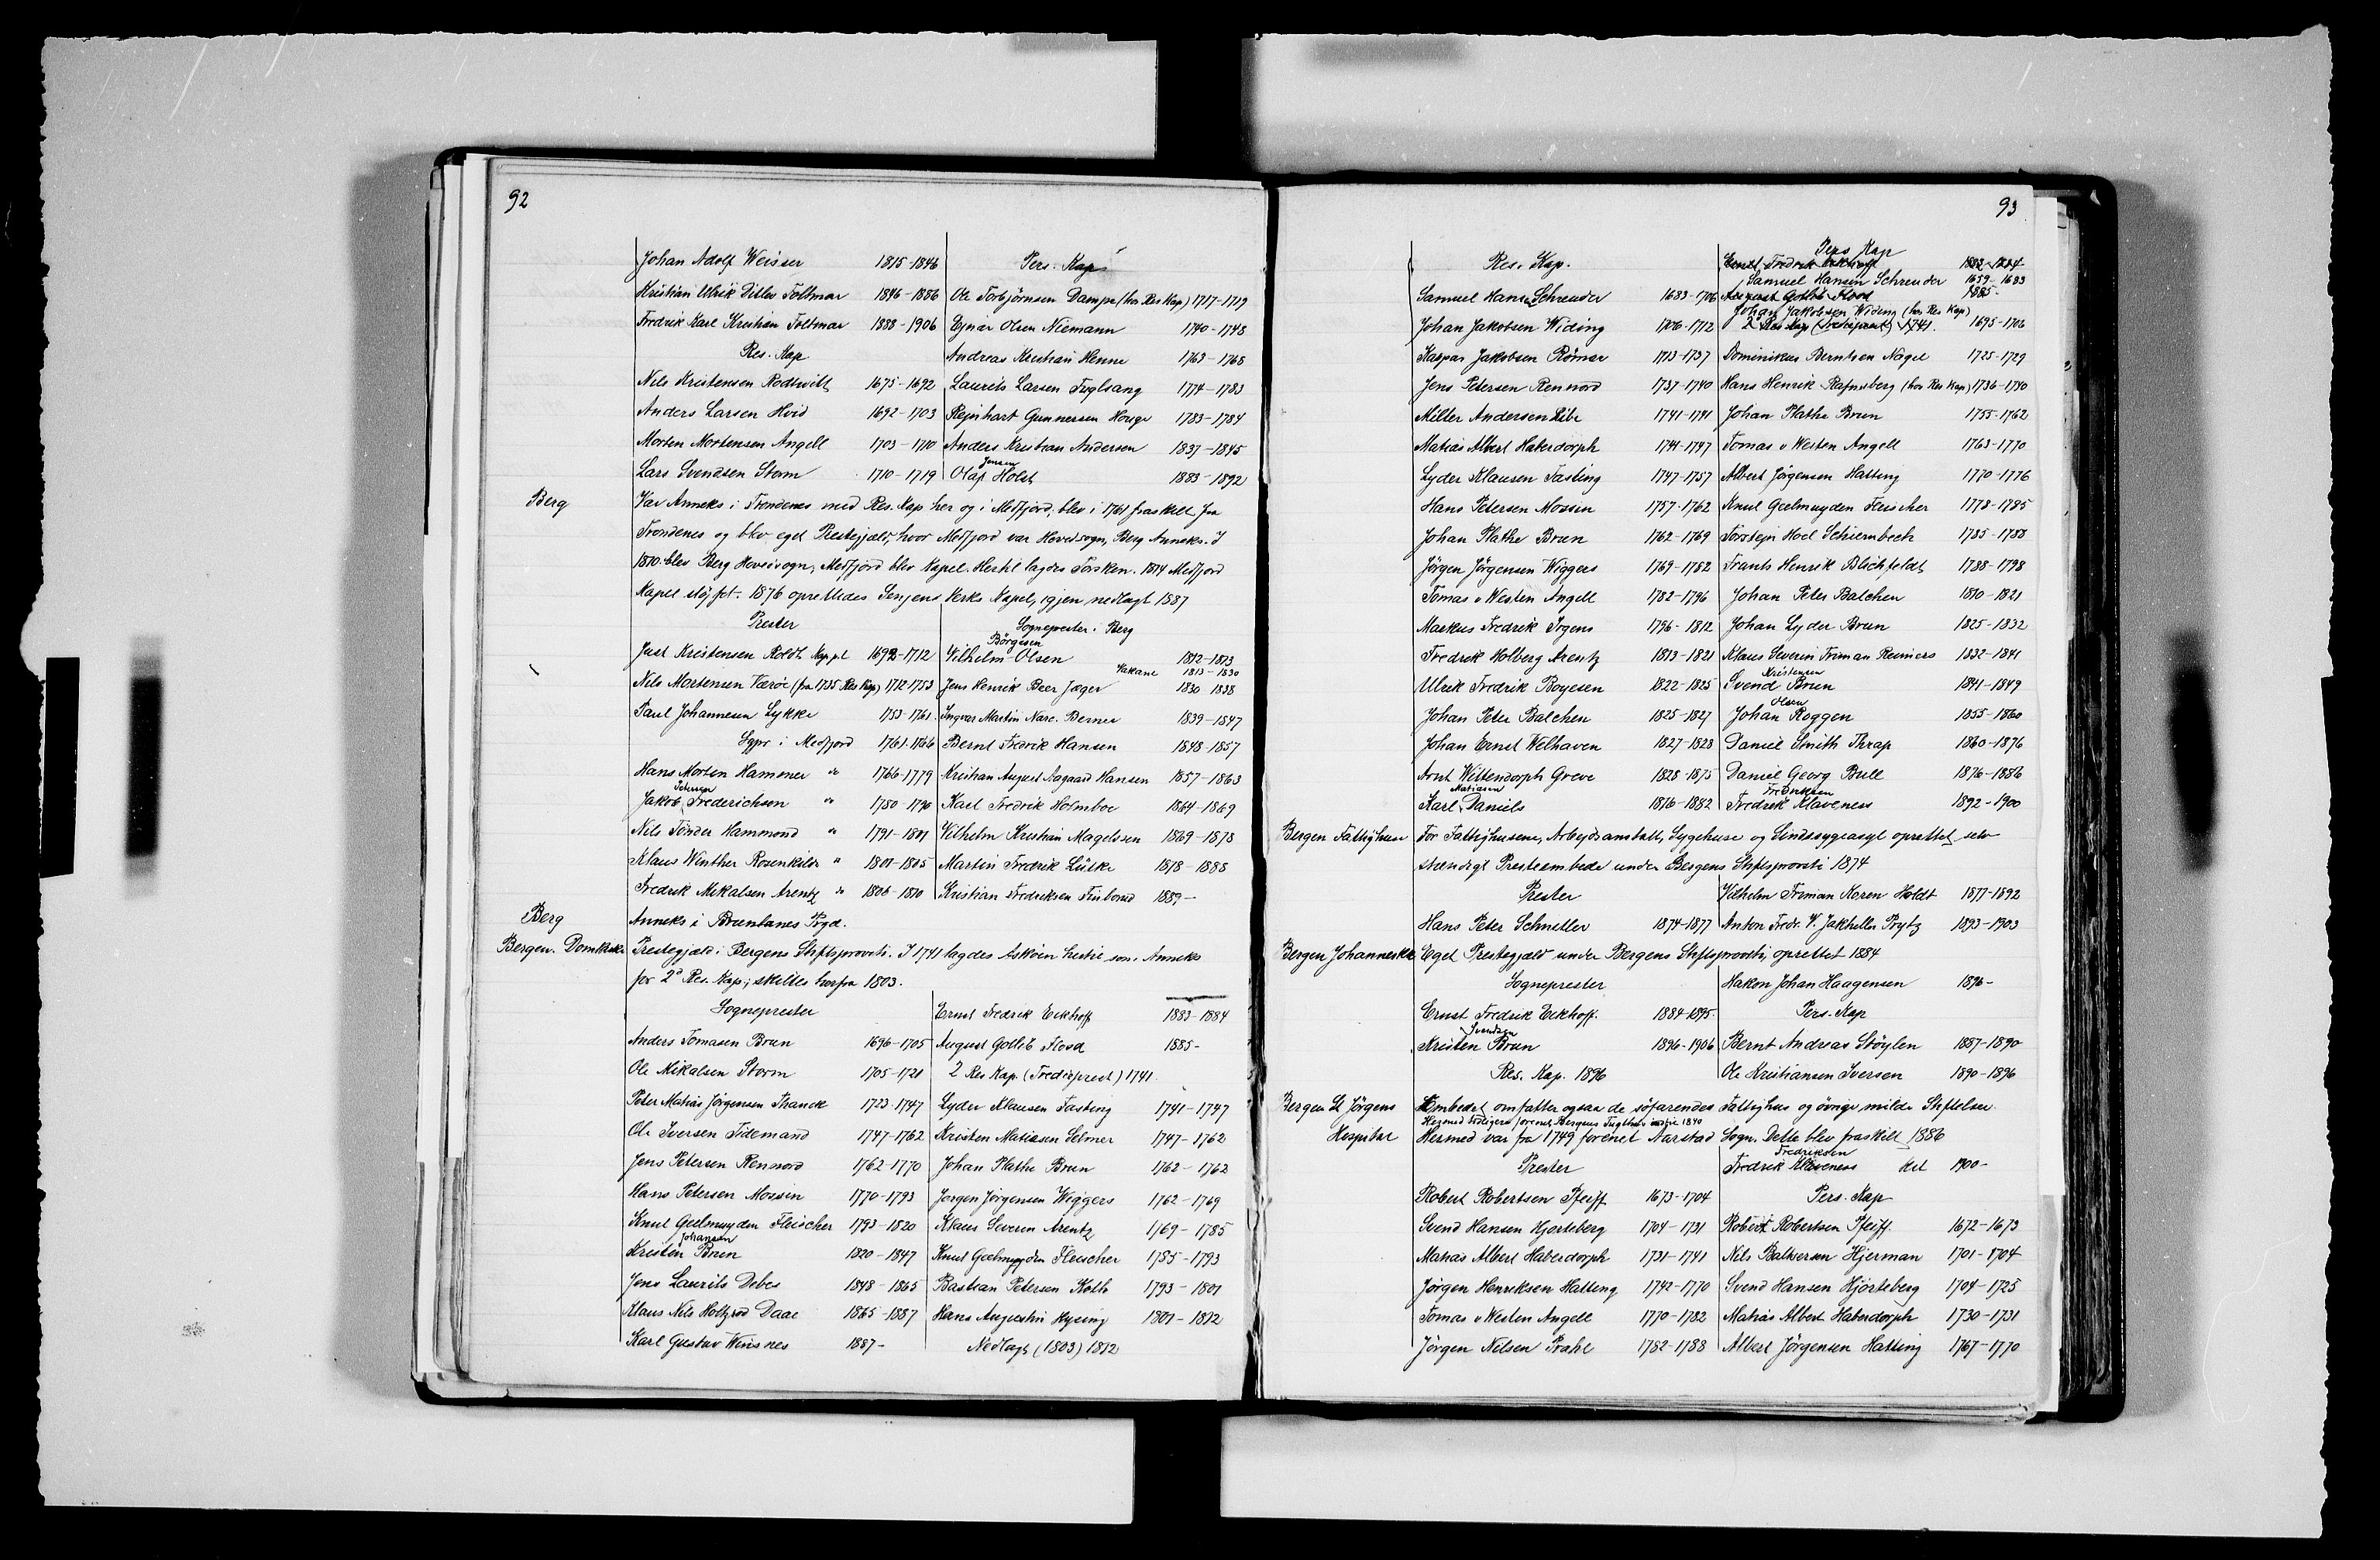 92
Johan Adolf Weisser 1815-1846
Kristian Ulrik Ditlev Foltmar 1846-1886
Fredrik Karl Kristian Foltmar 1888-1906
Res. Kap
Nils Kristensen Rodtwitt 1675-1692
Anders Larsen Hvid 1692-1703
Morten Mortensen Angell 1703-1710
Lars Svendsen Storm 1710-1719
Pers. Kap
Ole Torbjörnsen Dampe (hos Res Kap) 1717-1719
Ejnar Olsen Niemann 1740-1748
Andreas Kristian Henne 1763-1768
Laurits Larsen Fuglsang 1774-1783
Rejnhart Gunnersen Houge 1783-1784
Anders Kristian Andersen 1837-1845
Olaf Jensen Holst 1883-1892
Berg
Var Anneks i Trondenes med Res. Kap her og i Medfjord; blev i 1761 fraskilt fra
Trondenes og blev eget Prestegjæld, hvor Medfjord var Hovedsogn, Berg Anneks. I
1810 blev Berg Hovedsogn, Medfjord blev Kapel. Hertil lagdes Torsken. 1814 Medfjord
Kapel sløjfet. 1876 oprettedes Senjens Verks Kapel, igjen nedlagt 1887
Prester
Just Kristensen Roldt Kapel 1692-1712
Nils Mortensen Væröe (fra 1735 Res Kap) 1712-1753
Paul Johannesen Lykke 1753-1761
Sgpr i Medfjord 1761-1766
Hans Morten Hammer " 1766-1779
Jakob Petersen Frederichsen " 1780-1790
Nils Tönder Hammond " 1791-1801
Klaus Winther Rosenkilde " 1801-1805
Fredrik Mikalsen Arentz " 1806-1810
Sogneprester i Berg
Vilhelm Börgesen Olsen 1812-1813
Vakane 1813-1830
Jens Henrik Beer Jæger 1830 1838
Ingvar Martin Narc. Berner 1839-1847
Bernt Fredrik Hansen 1848-1857
Kristian August Aagaard Hansen 1857-1863
Karl Fredrik Holmboe 1864-1869
Vilhelm Kristian Magelssen 1869-1878
Martin Fredrik Lütke 1878-1888
Kristian Fredriksen Finborud 1889-
Berg
Anneks i Brunlanes Pgd.
Bergen. Domkirke
Prestegjæld i Bergens Stiftsprovsti. I 1741 lagdes Asköen hertil som Anneks
for 2d Res. Kap; skiltes herfra 1803.
Sogneprester
Anders Tomasen Brun 1696-1705
Ole Mikalsen Storm 1705-1721
Peter Matias Jörgensen Schanck 1723-1747
Ole Iversen Tidemand 1747-1762
Jens Petersen Rennord 1762-1770
Hans Petersen Mossin 1770-1793
Knut Geelmuyden Fleischer 1793-1820
Kristen Johansen Brun 1820-1847
Jens Laurits Debes 1848-1865
Klaus Nils Holtzrud Daae 1865-1887
Karl Gustav Wiisnes 1887-
Ernst Fredrik Eckhoff 1883-1884
August Gotlib Flood 1885-
2 Res Kap. (Fredagsprest) 1741
Lyder Klausen Fasting 1741-1747
Kristen Matiasen Selmer 1747-1762
Johan Plathe Brun 1762-1762
Jörgen Jörgensen Wiggers 1762-1769
Klaus Severin Arentz 1769-1785
Knut Geelmuyden Fleischer 1785-1793
Bastian Petersen Koth 1793-1801
Hans Augustin Hysing 1801-1812
Nedlagt (1803) 1812
93
Res. Kap.
Samuel Hansen Schreuder 1683-1706
Johan Jakobsen Widing 1706-1712
Kaspar Jakobsen Römer 1713-1737
Jens Petersen Rennord 1737-1740
Milter Andersen Libr 1741-1741
Matias Albert Haberdorph 1741-1747
Lyder Klausen Fasting 1747-1757
Hans Petersen Mossin 1757-1762
Johan Plathe Brun 1762-1769
Jörgen Jörgensen Wiggers 1769-1782
Tomas v Westen Angell 1782-1796
Markus Fredrik Irgens 1796-1812
Fredrik Holberg Arentz 1813-1821
Ulrik Fredrik Boyesen 1822-1825
Johan Peter Balchen 1825-1827
Johan Ernst Welhaven 1827-1828
Arnt Wittendorph Greve 1828-1875
Karl Matiasen Daniels 1876-1882
Pers Kap
Ernst Fredrik Eckhoff 1883-1884
Samuel Hansen Schreuder 1659-1683
August Gotlib Flood 1885-
Johan Jakobsen Widing (hos Res Kap) 1695-1706
2 Res Kap (Fredagsprest) 1741.
Dominikus Berntsen Nagel 1725-1729
Hans Henrik Rafnsberg (hos Res Kap) 1736-1740
Johan Plathe Brun 1755-1762
Tomas v Westen Angell 1763-1770
Albert Jörgensen Hatting 1770-1776
Knut Geelmuyden Fleischer 1778-1785
Torstejn Hoel Schiernbech 1785-1788
Frants Henrik Blichfeldt 1788-1798
Johan Peter Balchen 1810-1821
Johan Lyder Brun 1825-1832
Klaus Severin Friman Reimers 1832-1841
Svend Kristensen Brun 1841-1849
Johan Olsen Roggen 1855-1860
Daniel Smith Thrap 1860-1876
Daniel Georg Bull 1876-1886
Fredrik Fredriksen Klaveness 1892-1900
Bergen Fattighuse
For Fattighusene, Arbejdsanstalt, Sygehuse og Sindssygeasyl oprettet selv
stændigt Presteembede under Bergens Stiftsprovsti 1874
Prester
Hans Peter Schnitler 1874-1877
Vilhelm Friman Koren Holdt 1877-1892
Anton Fredr. V. Jakhelln Prytz 1893-1903
Bergen Johanneskke
Eget Prestegjæld under Bergens Stiftsprovsti, oprettet 1884
Sogneprester
Ernst Fredrik Eckhoff 1884-1895
Kristen Svendsen Brun 1896-1906
Res. Kap. 1896
Hakon Johan Haagensen 1896-
Pers. Kap
Bernt Andreas Stöylen 1887-1890
Ole Kristiansen Iversen 1890-1896
Bergen St Jörgens
Hospital
Embedet omfatter ogsaa de söfarendes Fattighus og övrige milde Stiftelser.
Hermed tidligere forenet Bergens Tugthus indtil 1840
Hermed var fra 1749 forenet Aarstad Sogn. Dette blev fraskilt 1886
Prester
Robert Robertsen Pfeiff 1673-1704
Svend Hansen Hjorteberg 1704-1731
Matias Albert Haberdorph 1731-1741
Jörgen Henriksen Hatting 1742-1770
Tomas v Westen Angell 1770-1782
Jörgen Nilsen Prahl 1782-1788
Fredrik Fredriksen Klaveness 1900-
Pers. Kap
Robert Robertsen Pfeiff 1672-1673
Nils Baltsersen Hjerman 1701-1704
Svend Hansen Hjorteberg 1704-1725
Matias Albert Haberdorph 1730-1731
Albert Jörgensen Hatting 1767-1770